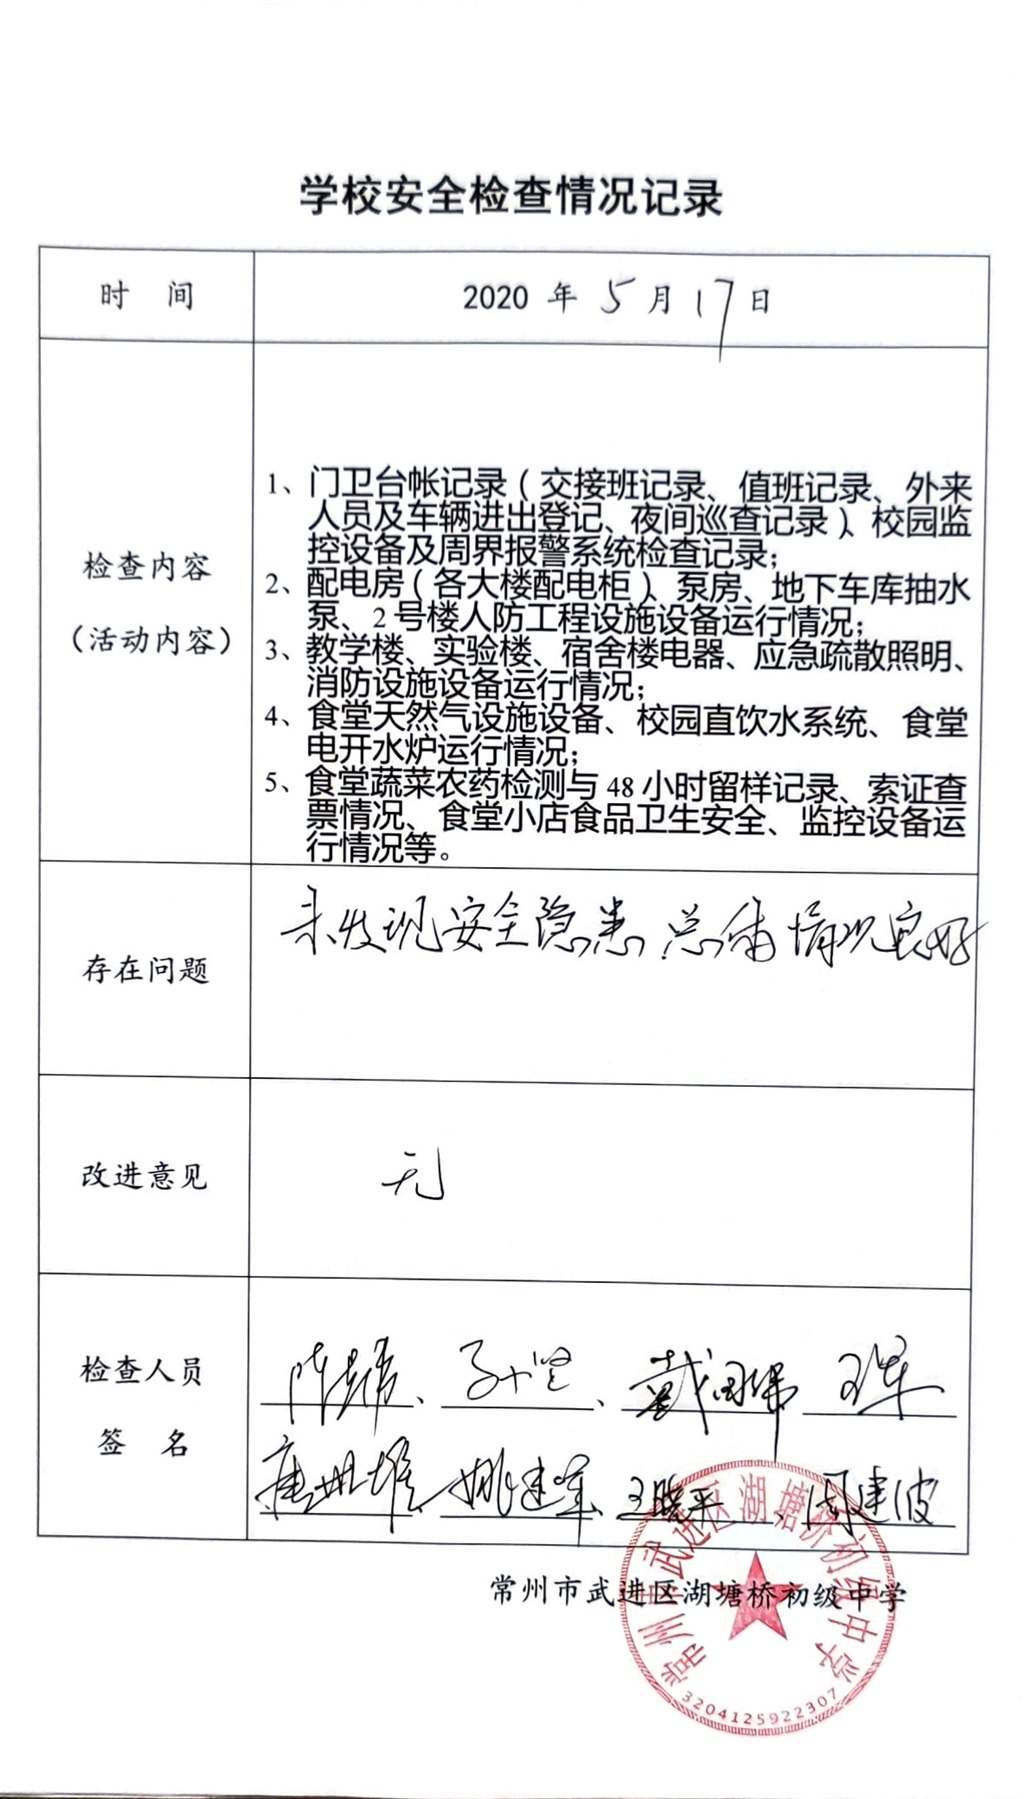 学校安全检查情况记录
时 间
2020 年 5 月 17 日
检查内容
（活动内容）
1、门卫台帐记录（交接班记录、值班记录、外来
人员及车辆进出登记、夜间巡查记录）、校园监
控设备及周界报警系统检查记录；
2、配电房（各大楼配电柜）、泵房、地下车库抽水
泵、2 号楼人防工程设施设备运行情况；
3、教学楼、实验楼、宿舍楼电器、应急疏散照明、
消防设施设备运行情况；
4、食堂天然气设施设备、校园直饮水系统、食堂
电开水炉运行情况；
5、食堂蔬菜农药检测与 48 小时留样记录、索证查
票情况、食堂小店食品卫生安全、监控设备运
行情况等。
存在问题
未发现安全隐患 总体情况良好
改进意见
无
检查人员
签 名
王军
姚建军、王晓平、周建波
常州市武进区湖塘桥初级中学
常州市武进区湖塘桥初级中学
3204125922307